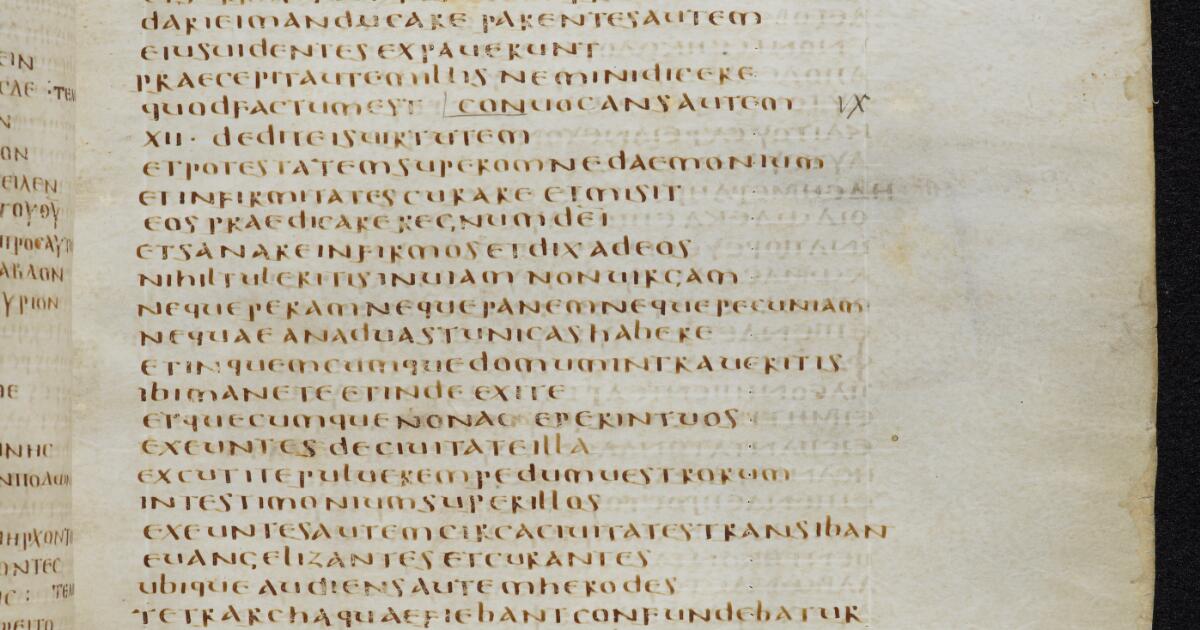 DARIEIMANDUCARE PARENTESAUTEM
EIUSUIDENTES EXPAUERUNT
PRAECEPITAUTEMILLIS NEMINIDICERE
QUODFACTUMEST CONUOCANSAUTEM IX
XII· DEDITEISUIRTUTEM
ETPOTESTATEMSUPEROMNEDAEMONIUM
ETINFIRMITATESCURARE ETMISIT
EOS PRAEDICAREREGNUMDEI
ETSANAREINFIRMOSETDIXADEOS
NIHILTULERITISINUIAM NONUIRGAM
NEQUEPERAMNEQUEPANEMNEQUEPECUNIAM
NEQUAE ANADUASTUNICASHABERE
ETINQUEMCUMQUEDOMUMINTRAUERITIS
IBIMANETE ETINDE EXITE
ETQUECUMQUENONAC EPERINTUOS
EXEUNTES DECIUITATEILLA
EXCUTITEPULUEREMPEDUMUESTRORUM
INTESTIMONIUMSUPERILLOS
EXEUNTESAUTEMCIRCACIUITATESTRANSIBANT
EUANGELIZANTES ETCURANTES
UBIQUE AUDIENSAUTEMHERODES
TETRARCHAQUAEFIEBANTCONFUNDEBATUR
ΕΙΝ
ΟΝ
ΕΙΛΕΝ
ΤΟΥΘΥ
ΑΒΛΟΝ
ΥΡΙΟΝ
ΟΝΤΕС